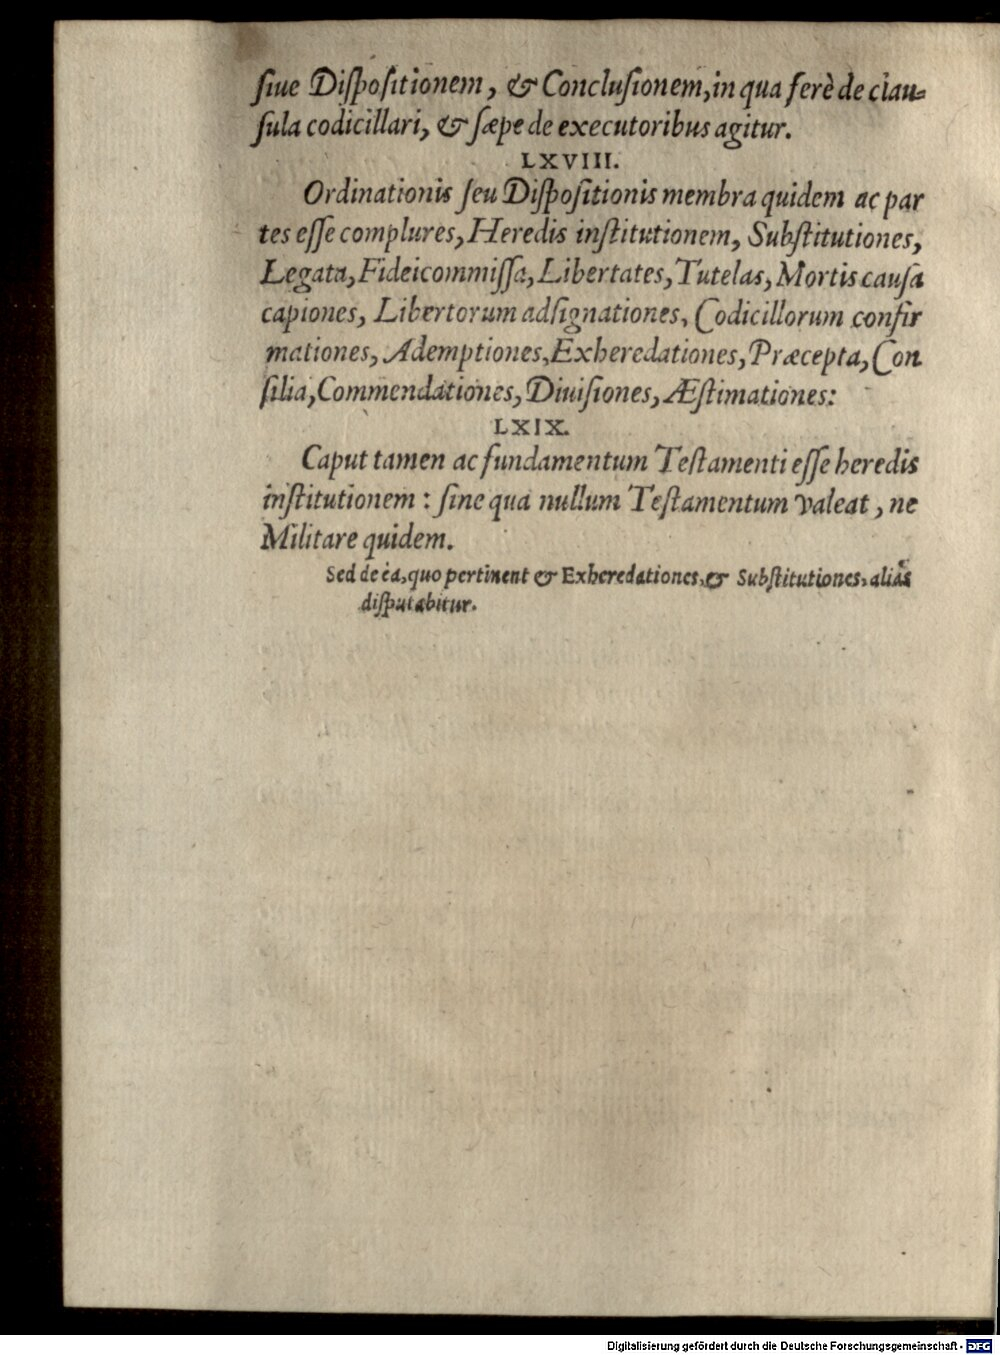 ſiue Diſpoſitionem, & Concluſionem, in qua ferè de clau-
ſula codicillari, & ſæpe de executoribus agitur.
LXVIII.
Ordinationis ſeu Diſpoſitionis membra quidem ac par
tes eſſe complures, Heredis inſtitutionem, Subſtitutiones,
Legata, Fideicommiſſa, Libertates, Tutelas, Mortis cauſa
capiones, Libertorum adſignationes, Codicillorum confir
mationes, Ademptiones, Exheredationes, Præcepta, Con
ſilia, Commendationes, Diuiſiones, Æſtimationes:
LXIX.
Caput tamen ac fundamentum Teſtamenti eſſe heredis
inſtitutionem: ſine qua nullum Teſtamentum valeat, ne
Militare quidem.
Sed de ea, quo pertinent & Exheredationes, & Subſtitutiones, aliàs
diſputabitur.
Digitalisierung gefördert durch die Deutsche Forschungsgemeinschaft - DFG